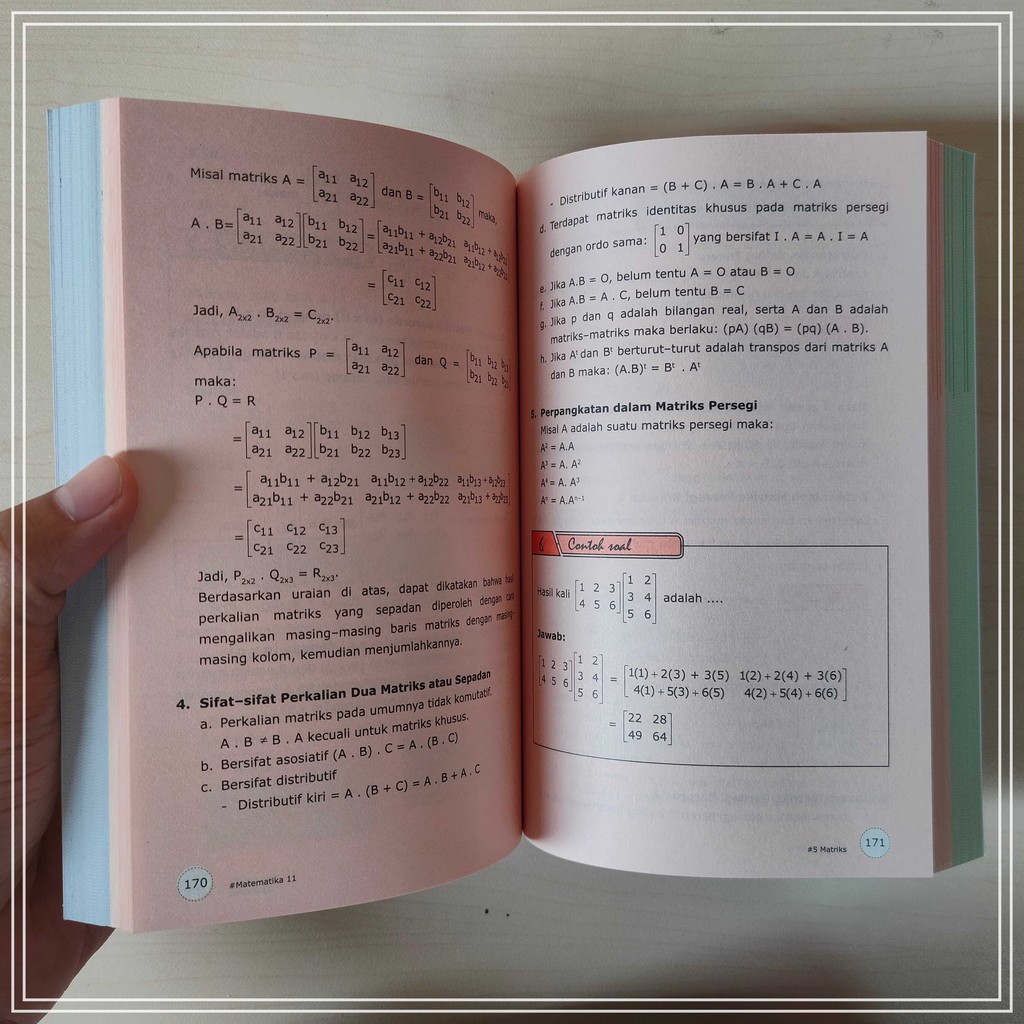 Misal matriks A = [a11 a12 / a21 a22] dan B = [b11 b12 / b21 b22] maka,
A . B= [a11 a12 / a21 a22][b11 b12 / b21 b22] = [a11b11 + a12b21 a11b12 + a12b22 / a21b11 + a22b21 a21b12 + a22b22]
= [c11 c12 / c21 c22]
Jadi, A2x2 . B2x2 = C2x2.
Apabila matriks P = [a11 a12 / a21 a22] dan Q = [b11 b12 b13 / b21 b22 b23]
maka:
P . Q = R
= [a11 a12 / a21 a22][b11 b12 b13 / b21 b22 b23]
= [a11b11 + a12b21 a11b12 + a12b22 a11b13 + a12b23 / a21b11 + a22b21 a21b12 + a22b22 a21b13 + a22b23]
= [c11 c12 c13 / c21 c22 c23]
Jadi, P2x2 . Q2x3 = R2x3.
Berdasarkan uraian di atas, dapat dikatakan bahwa hasil
perkalian matriks yang sepadan diperoleh dengan cara
mengalikan masing–masing baris matriks dengan masing–
masing kolom, kemudian menjumlahkannya.
4. Sifat–sifat Perkalian Dua Matriks atau Sepadan
a. Perkalian matriks pada umumnya tidak komutatif.
A . B ≠ B . A kecuali untuk matriks khusus.
b. Bersifat asosiatif (A . B) . C = A . (B . C)
c. Bersifat distributif
- Distributif kiri = A . (B + C) = A . B + A . C
170 #Matematika 11
- Distributif kanan = (B + C) . A = B . A + C . A
d. Terdapat matriks identitas khusus pada matriks persegi
dengan ordo sama: [1 0 / 0 1] yang bersifat I . A = A . I = A
e. Jika A.B = O, belum tentu A = O atau B = O
f. Jika A.B = A . C, belum tentu B = C
g. Jika p dan q adalah bilangan real, serta A dan B adalah
matriks–matriks maka berlaku: (pA) (qB) = (pq) (A . B).
h. Jika Aᵗ dan Bᵗ berturut–turut adalah transpos dari matriks A
dan B maka: (A.B)ᵗ = Bᵗ . Aᵗ
5. Perpangkatan dalam Matriks Persegi
Misal A adalah suatu matriks persegi maka:
A² = A.A
A³ = A. A²
A⁴ = A. A³
Aⁿ = A.Aⁿ⁻¹
6 Contoh soal
Hasil kali [1 2 3 / 4 5 6][1 2 / 3 4 / 5 6] adalah ....
Jawab:
[1 2 3 / 4 5 6][1 2 / 3 4 / 5 6] = [1(1) + 2(3) + 3(5) 1(2) + 2(4) + 3(6) / 4(1) + 5(3) + 6(5) 4(2) + 5(4) + 6(6)]
= [22 28 / 49 64]
#5 Matriks 171